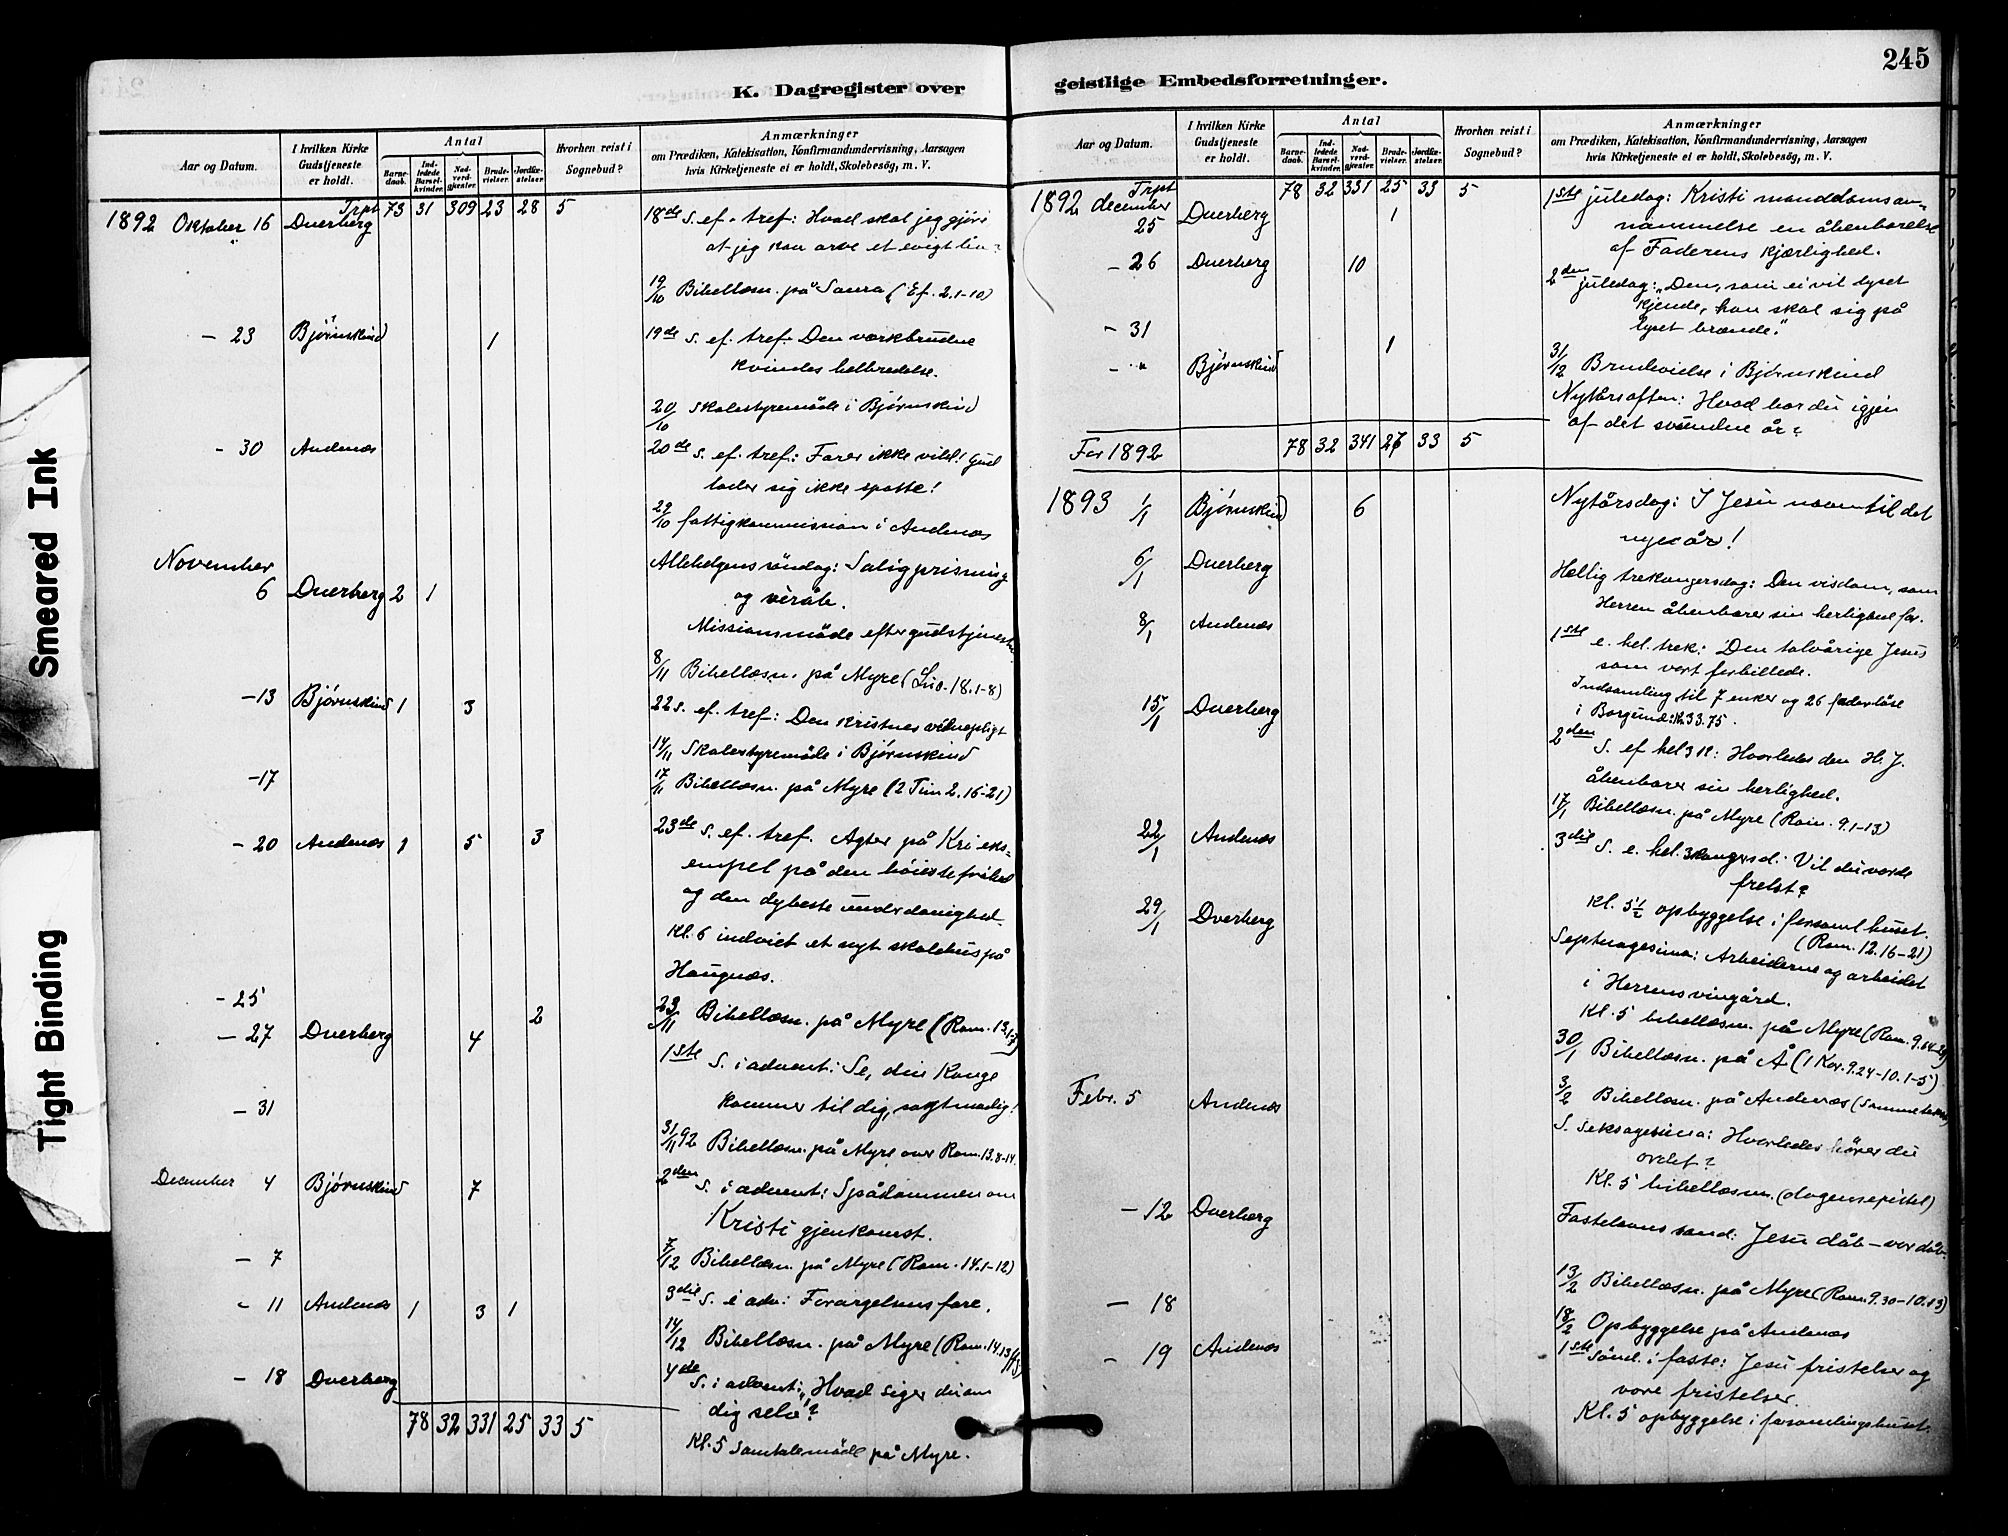 245
K. Dagregister over
geistlige Embedsforretninger.
Smeared Ink
Tight Binding
Aar og Datum.
I hvilken Kirke Gudstjeneste er holdt.
Antal
Barnedaab.
Indledede Barselkvinder.
Nadverdgjæster.
Brudevielser.
Jordfæstelser.
Hvorhen reist i Sognebud?
Anmærkninger
om Prædiken, Katekisation, Konfirmandundervisning, Aarsagen
hvis Kirketjeneste ei er holdt, Skolebesög, m. V.
Trpt 73 31 309 23 28 5
1892 Oktober 16 Dverberg 18de s. ef. tref: Hvad skal jeg gjøre
at jeg kan arve et evigt liv?
19/10 Bibellæsn. på Saura (Ef. 2.1-10)
- 23 Bjørnskind 1 19de s. ef. tref. Den værkbrudne
kvindes helbredelse.
20/10 Skolestyremöde i Bjørnskind
- 30 Andenæs 20de s. ef. tref.: Farer ikke vild! Gud
lader sig ikke spotte!
29/10 fattigkommission i Andenæs
November
6 Dverberg 2 1 Allehelgens söndag: Saligprisning
og veråb.
Missionsmöde efter gudstjenesten.
8/11 Bibellæsn. på Myre (Luc. 18.1-8)
-13 Bjørnskind 1 3 22 s. ef. tref: Den kristnes vidnepligt
14/11 Skolestyremöde i Bjørnskind
-17 17/11 Bibellæsn. på Myre (2 Tim 2.16-21)
- 20 Andenæs 1 5 3 23de s. ef. tref. Agter på Kri eks=
empel på den höieste frihed
og den dybeste underdanighed.
Kl. 6 indviet et nyt skolehus på
Haugnæs.
- 25 2 23/11 Bibellæsn. på Myre (Rom. 13.1-7)
- 27 Dverberg 4 1ste S. i advent: Se, din Konge
kommer til dig, sagtmodig!
- 31 31/11 92 Bibellæsn. på Myre over Rom. 13.8-14.
December 4 Bjørnskind 7 2den S. i advent: Spådommen om
Kristi gjenkomst.
- 7 7/12 Bibellæsn. på Myre (Rom. 14.1-12)
- 11 Andenæs 1 3 1 3die S. i adv: Forargelsens fare.
14/12 Bibellæsn. på Myre (Rom. 14.13 ffg)
- 18 Dverberg 4de S. i advent: "Hvad siger du om
dig selv"?
78 32 331 25 33 5
Kl. 5 Samtalemöde på Myre.
Aar og Datum.
I hvilken Kirke Gudstjeneste er holdt.
Antal
Barnedaab.
Indledede Barselkvinder.
Nadverdgjæster.
Brudevielser.
Jordfæstelser.
Hvorhen reist i Sognebud?
Anmærkninger
om Prædiken, Katekisation, Konfirmandundervisning, Aarsagen
hvis Kirketjeneste ei er holdt, Skolebesög, m. V.
Trpt 78 32 331 25 33 5
1892 december
25 Dverberg 1 1ste juledag: Kristi manddomsan=
nammelse en åbenbarelse
af Faderens kjærlighed.
- 26 Dverberg 10 2den juledag: "Den, som ei vil lyset
kjende, han skal sig på
lyset brænde."
- 31 1 31/12 Brudevielse i Bjørnskind
- " Bjørnskind Nytårsaften: Hvad har du igjen
af det svundne år?
For 1892 78 32 341 27 33 5
1893 1/1 Bjørnskind 6 Nytårsdag: I Jesu navn til det
nye år!
6/1 Dverberg Hellig trekongersdag: Den visdom, som
Herren åbenbarer sin herlighed for.
8/1 Andenæs 1ste e. hel. trek: Den tolvårige Jesus
som vort forbillede.
Indsamling til 7 enker og 26 faderløse
i Borgund: K 33.75.
15/1 Dverberg 2den S. ef hel 3 K: Hvorledes den H. J.
åbenbarer sin herlighed.
17/1 Bibellæsn. på Myre (Rom. 9.1-13)
22/1 Andenæs 3die S. e. hel. 3kongersd: Vil du vorde
frelst?
Kl. 5½ opbyggelse i forsaml huset.
(Rom. 12.16-21)
29/1 Dverberg Septuagesima: Arbeiderne og arbeidet
i Herrens vingård.
Kl. 5 bibellæsn. på Myre (Rom. 9.14-29)
30/1 Bibellæsn. på Å (1 Kor. 9.24-10.1-5)
3/2 Bibellæsn. på Andenæs (Samme tekst)
Febr. 5 Andenæs S. Seksagesima: Hvorledes hörer du
ordet?
Kl. 5 bibellæsn. (dagens epistel)
- 12 Dverberg Fastelavns sönd: Jesu dåb - vor dåb.
13/2 Bibellæsn. på Myre (Rom. 9.30-10.13)
- 18 18/2 Opbyggelse på Andenæs
- 19 Andenæs 1ste Sönd. i faste: Jesu fristelser og
vore fristelser.
Kl. 5 opbyggelse i forsamlingshuset.